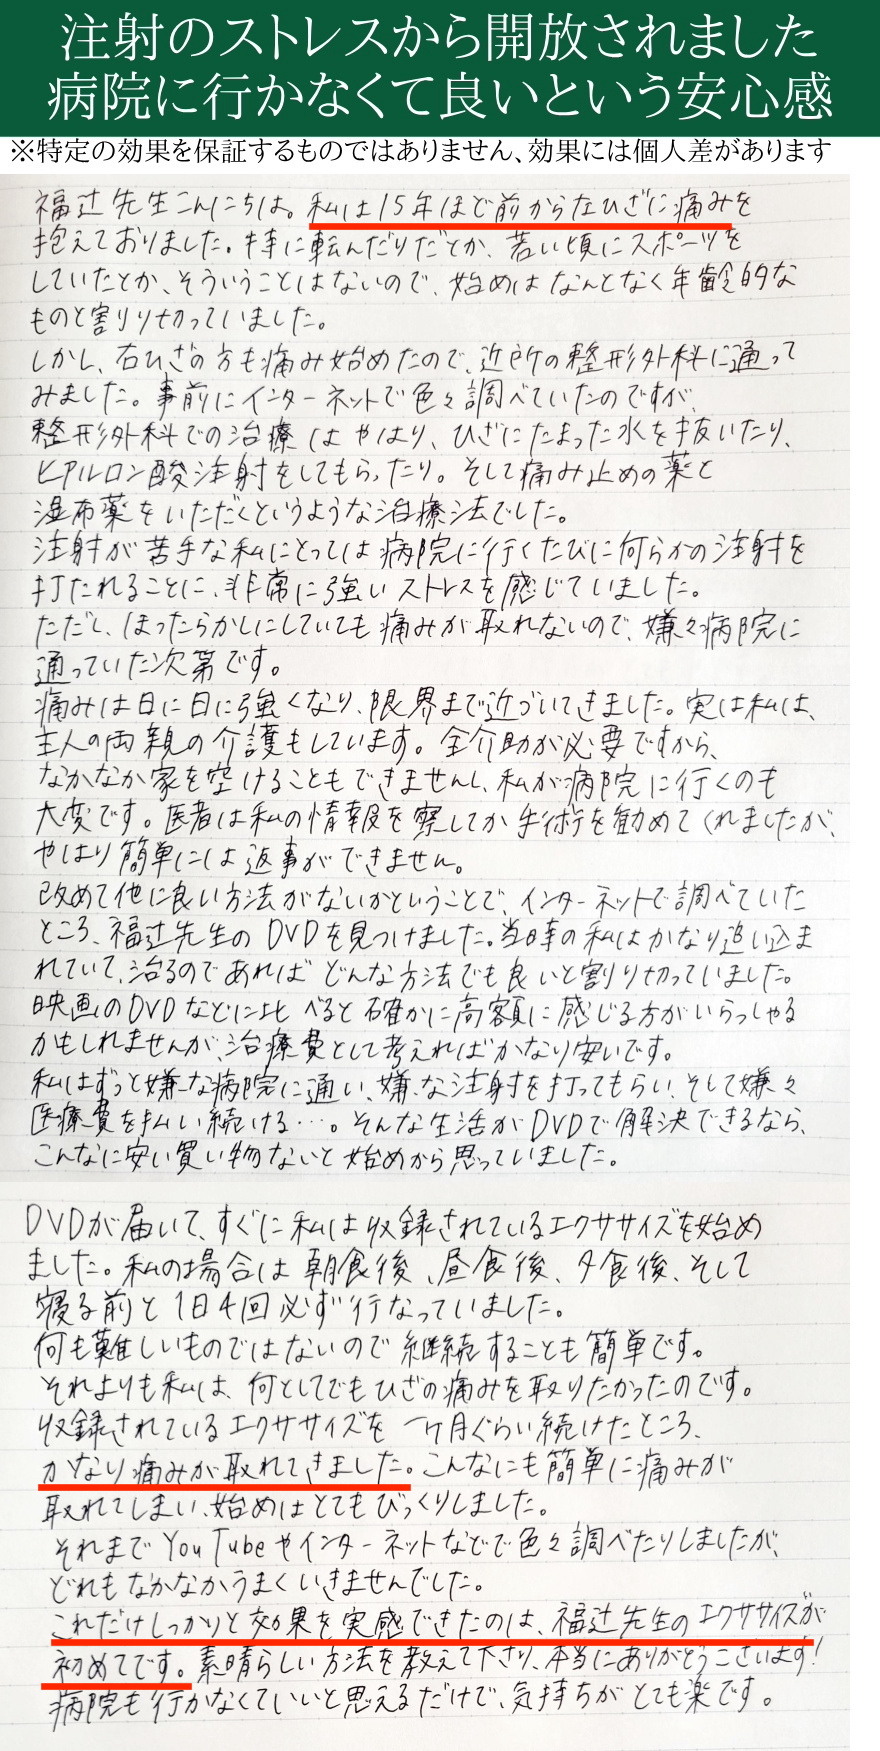 注射のストレスから開放されました
病院に行かなくて良いという安心感
※特定の効果を保証するものではありません、効果には個人差があります
福辻先生こんにちは。私は15年ほど前から左ひざに痛みを
抱えておりました。特に転んだりだとか、若い頃にスポーツを
していたとか、そういうことはないので、始めはなんとなく年齢的な
ものと割り切っていました。
しかし、右ひざの方も痛み始めたので、近所の整形外科に通って
みました。事前にインターネットで色々調べていたのですが、
整形外科での治療はやはり、ひざにたまった水を抜いたり、
ヒアルロン酸注射をしてもらったり。そして痛み止めの薬と
湿布薬をいただくというような治療法でした。
注射が苦手な私にとっては病院に行くたびに何らかの注射を
打たれることに、非常に強いストレスを感じていました。
ただし、ほったらかしにしていても痛みが取れないので、嫌々病院に
通っていた次第です。
痛みは日に日に強くなり、限界まで近づいてきました。実は私は、
主人の両親の介護もしています。全介助が必要ですから、
なかなか家を空けることもできませんし、私が病院に行くのも
大変です。医者は私の情報を察してか手術を勧めてくれましたが、
やはり簡単には返事ができません。
改めて他に良い方法がないかということで、インターネットで調べていた
ところ、福辻先生のDVDを見つけました。当時の私はかなり追い込ま
れていて、治るのであればどんな方法でも良いと割り切っていました。
映画のDVDなどに比べると確かに高額に感じる方がいらっしゃる
かもしれませんが、治療費として考えればかなり安いです。
私はずっと嫌な病院に通い、嫌な注射を打ってもらい、そして嫌々
医療費を払い続ける…。そんな生活がDVDで解決できるなら、
こんなに安い買い物ないと始めから思っていました。
DVDが届いて、すぐに私は収録されているエクササイズを始め
ました。私の場合は朝食後、昼食後、夕食後、そして
寝る前と1日4回必ず行なっていました。
何も難しいものではないので継続することも簡単です。
それよりも私は、何としてでもひざの痛みを取りたかったのです。
収録されているエクササイズを一ヶ月ぐらい続けたところ、
かなり痛みが取れてきました。こんなにも簡単に痛みが
取れてしまい、始めはとてもびっくりしました。
それまでYouTubeやインターネットなどで色々調べたりしましたが、
どれもなかなかうまくいきませんでした。
これだけしっかりと効果を実感できたのは、福辻先生のエクササイズが
初めてです。素晴らしい方法を教えて下さり、本当にありがとうございます!
病院も行かなくていいと思えるだけで、気持ちがとても楽です。